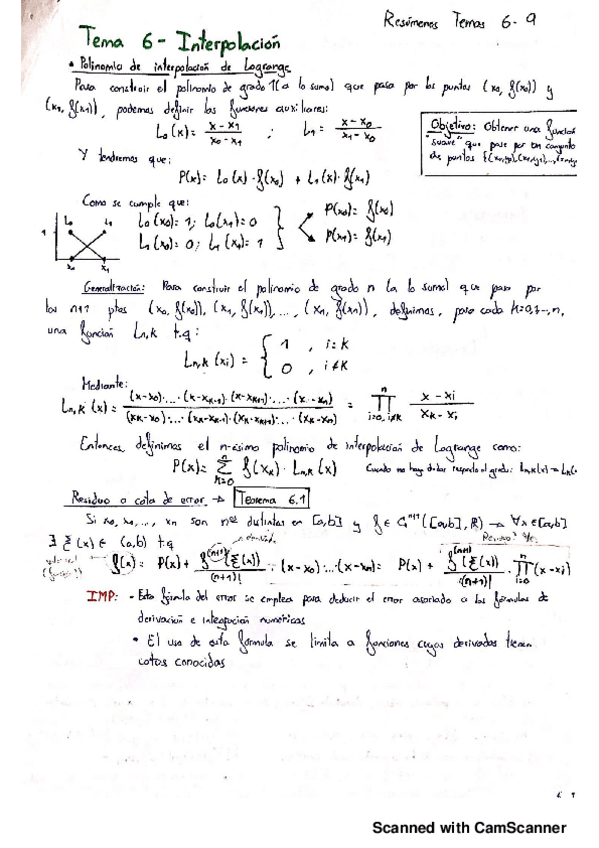 Resúmenes Temas 6-9
Tema 6 - Interpolación
• Polinomio de interpolación de Lagrange
Para construir el polinomio de grado 1 (a lo sumo) que pasa por los puntos (x0, f(x0)) y
(x1, f(x1)), podemos definir las funciones auxiliares:
L0(x) = (x-x1)/(x0-x1) ; L1 = (x-x0)/(x1-x0)
Objetivo: Obtener una función
"suave" que pase por un conjunto
de puntos
Y tendremos que:
P(x) = L0(x)·f(x0) + L1(x)·f(x1)
Como se cumple que:
L0(x0)=1; L0(x1)=0
L1(x0)=0; L1(x1)=1
P(x0)=f(x0)
P(x1)=f(x1)
1
L0 L1
x0 x1
Generalización: Para construir el polinomio de grado n (a lo sumo) que pasa por
los n+1 ptos (x0, f(x0)), (x1, f(x1)), ..., (xn, f(xn)), definimos, para cada k=0,1,...,n,
una función Ln,k t.q:
Ln,k(xi) = { 1 , i=k
0 , i≠k
Mediante:
Ln,k(x) = (x-x0)·...·(x-xk-1)·(x-xk+1)·...·(x-xn) / (xk-x0)·...·(xk-xk-1)·(xk-xk+1)·...·(xk-xn) = ∏ i=0, i≠k n (x-xi)/(xk-xi)
Entonces, definimos el n-ésimo polinomio de interpolación de Lagrange como:
P(x) = ∑ k=0 n f(xk)·Ln,k(x) Cuando no hay dudas respecto al grado: Ln,k(x) = Lk(
Residuo o cota de error → Teorema 6.1
Si x0, x1, ..., xn son nos distintos en [a,b] y f ∈ C^n+1([a,b], R) → ∀x∈[a,b]
∃ ξ(x) ∈ (a,b) t.q
f(x) = P(x) + f^(n+1)(ξ(x))/(n+1)! · (x-x0)·...·(x-xn) = P(x) + f^(n+1)(ξ(x))/(n+1)! · ∏ i=0 n (x-xi)
IMP: - Esta fórmula del error se emplea para deducir el error asociado a las fórmulas de
derivación e integración numéricas
• El uso de esta fórmula se limita a funciones cuyas derivadas tienen
cotas conocidas
Scanned with CamScanner